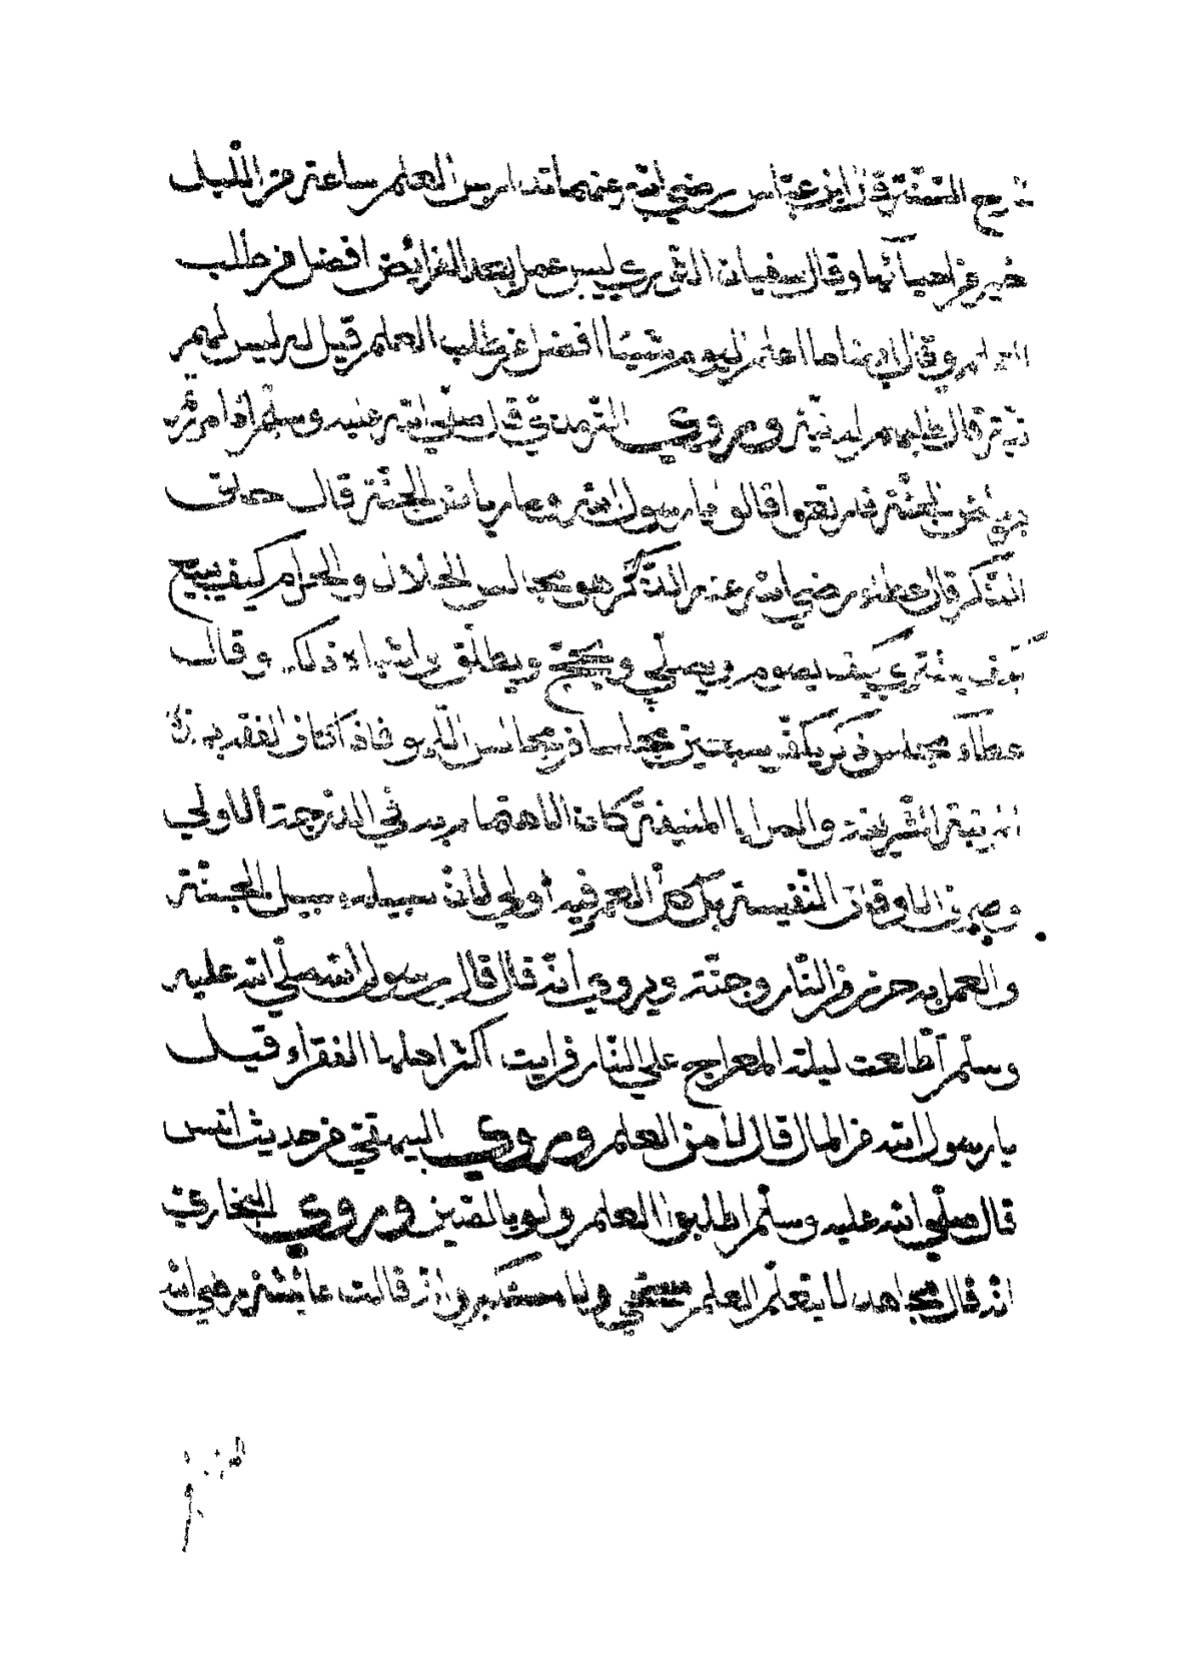 شرح السنة قال ابن عباس رضي الله عنهما تدارس العلم ساعة من الليل
خير من احيائها وقال سفيان الثوري ليس عمل بعد الفرائض افضل من طلب
العلم وقال ايضا ما اعلم اليوم شيئا افضل من طلب العلم قيل له ليس لهم
نية قال طلبهم له نية وروي الترمذي قال صلي الله عليه وسلم اذا مررتم
برياض الجنة فارتعوا قالوا يا رسول الله وما رياض الجنة قال حلق
الذكر قال عطاء رضي الله عنه الذكر هو مجالس الحلال والحرام كيف يبيع
كيف يشتري كيف يصوم ويصلي ويحج ويطلق واشباه ذلك وقال
عطاء مجلس ذكر يكفر سبعين مجلسا من مجالس اللهو فاذا كان الفقه بهذه
المرتبة الشريفة والمزايا المنيفة كان الاهتمام به في الدرجة الاولي
وصرف الاوقات النفيسة بل كل العمر فيه أولي لان سبيله سبيل الجنة
والعمل به حرز من النار وجنة ويروي انه قال قال رسول الله صلي الله عليه
وسلم اطلعت ليلة المعراج علي النار فرايت اكثر اهلها الفقراء قيل
يا رسول الله من المال قال لا من العلم وروي البيهقي من حديث انس
قال صلي الله عليه وسلم اطلبوا العلم ولو بالصين وروي البخاري
انه قال مجاهد لا يتعلم العلم مستحي ولا مستكبر وانه قالت عائشة رضي الله